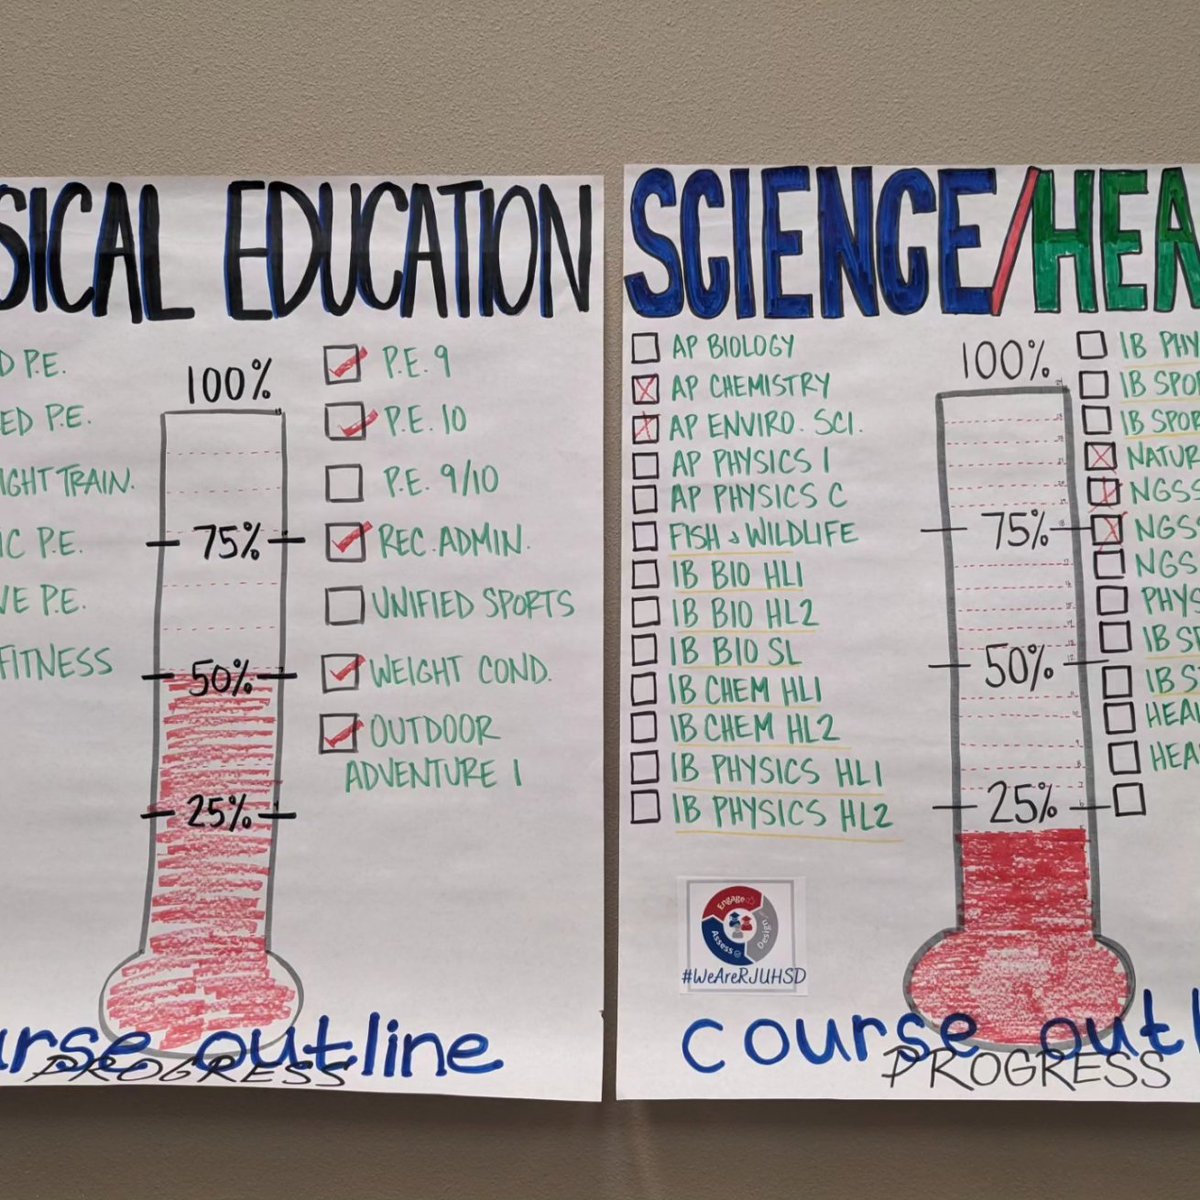 SICAL EDUCATION
D P.E.
ED P.E.
IGHT TRAIN.
IC P.E.
VE P.E.
FITNESS
100%
75%
50%
25%
P.E. 9
P.E. 10
P.E. 9/10
REC. ADMIN.
UNIFIED SPORTS
WEIGHT COND.
OUTDOOR
ADVENTURE 1
urse outline
PROGRESS
SCIENCE/HEA
AP BIOLOGY
AP CHEMISTRY
AP ENVIRO. SCI.
AP PHYSICS 1
AP PHYSICS C
FISH & WILDLIFE
IB BIO HL1
IB BIO HL2
IB BIO SL
IB CHEM HL1
IB CHEM HL2
IB PHYSICS HL1
IB PHYSICS HL2
100%
75%
50%
25%
IB PHY
IB SPO
IB SPOR
NATUR
NGSS
NGSS
NGS
PHYS
IB S
IB S
HEA
HEA
Engage
Design
Assess
#WeAreRJUHSD
course outl
PROGRESS